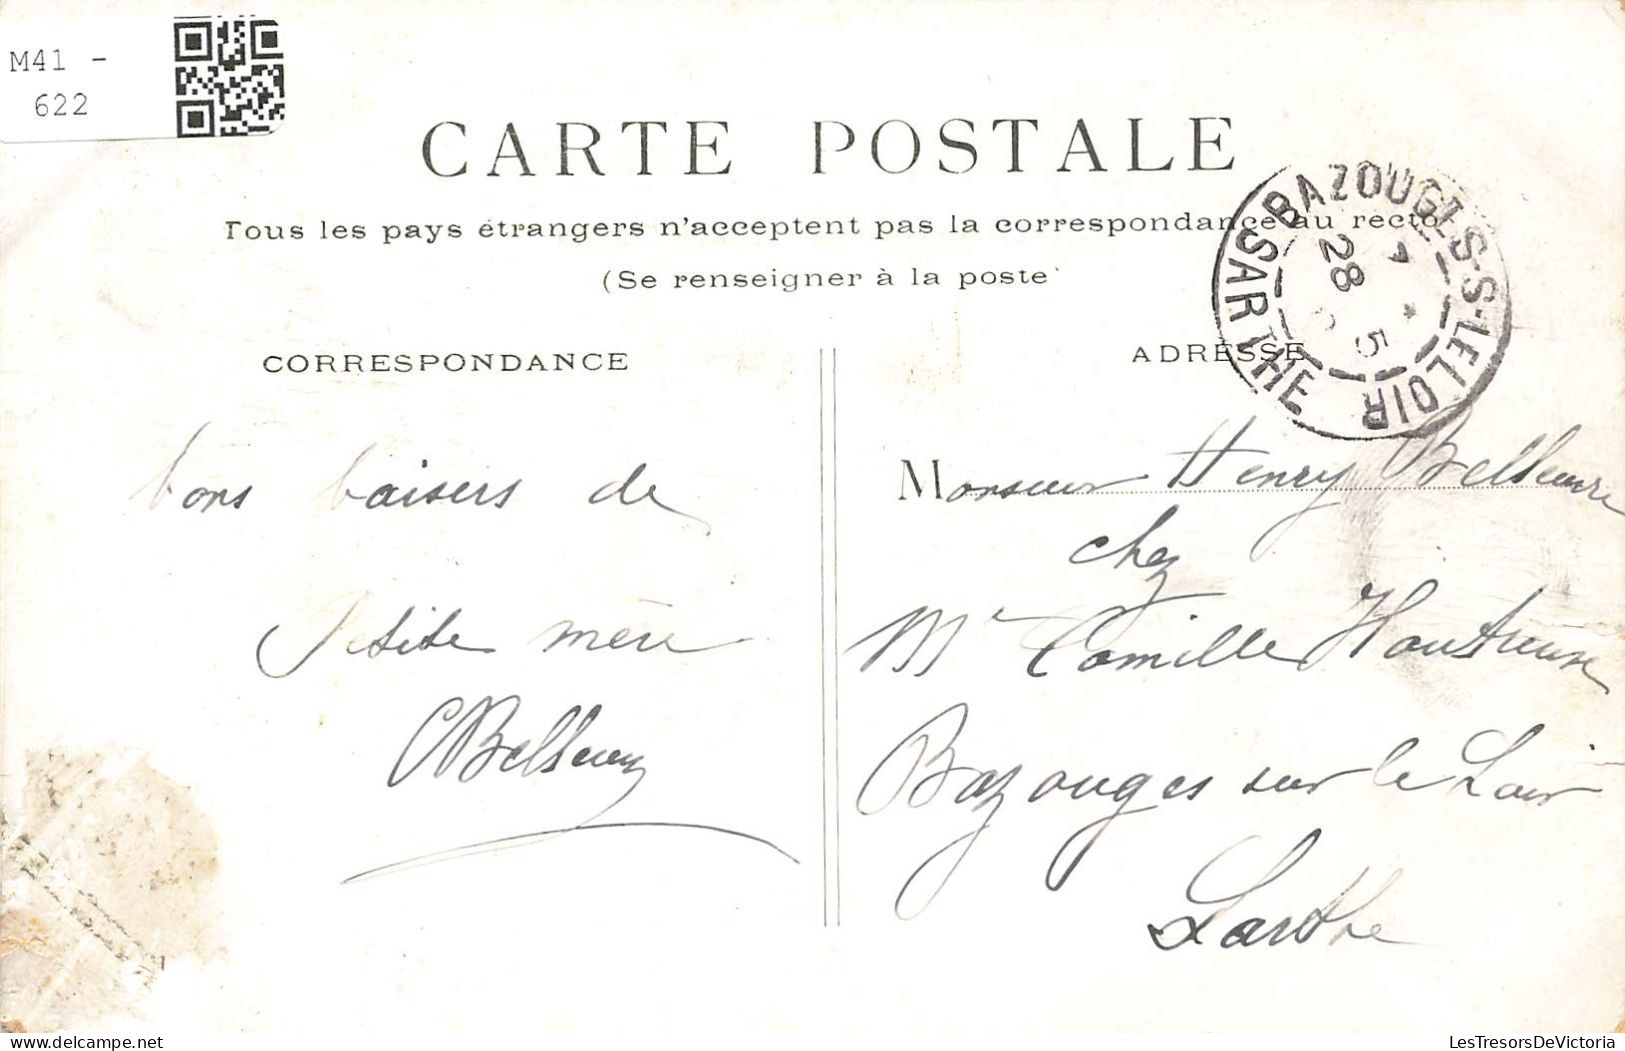 M41 -
622
CARTE POSTALE
Tous les pays étrangers n'acceptent pas la correspondance au recto
(Se renseigner à la poste
CORRESPONDANCE
ADRESSE
BAZOUGES-S-LE LOIR
SARTHE
28
5
bons baisers de
Petite mère
Monsieur Henry
chez
Mr Camille
Bazouges sur le Loir
Sarthe
LesTresorsDeVictoria
www.delcampe.net